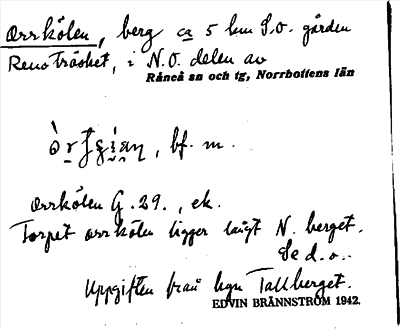 Orrkölen, berg ca 5 km S.O. gården
Renoträsket, i N.O. delen av
Råneå sn och tg, Norrbottens län
bf. m.
Orrkölen G. 29., ek.
Torpet Orrkölen ligger långt N. berget.
Se d. o..
Uppgiften från byn Tallberget.
EDVIN BRÄNNSTRÖM 1942.